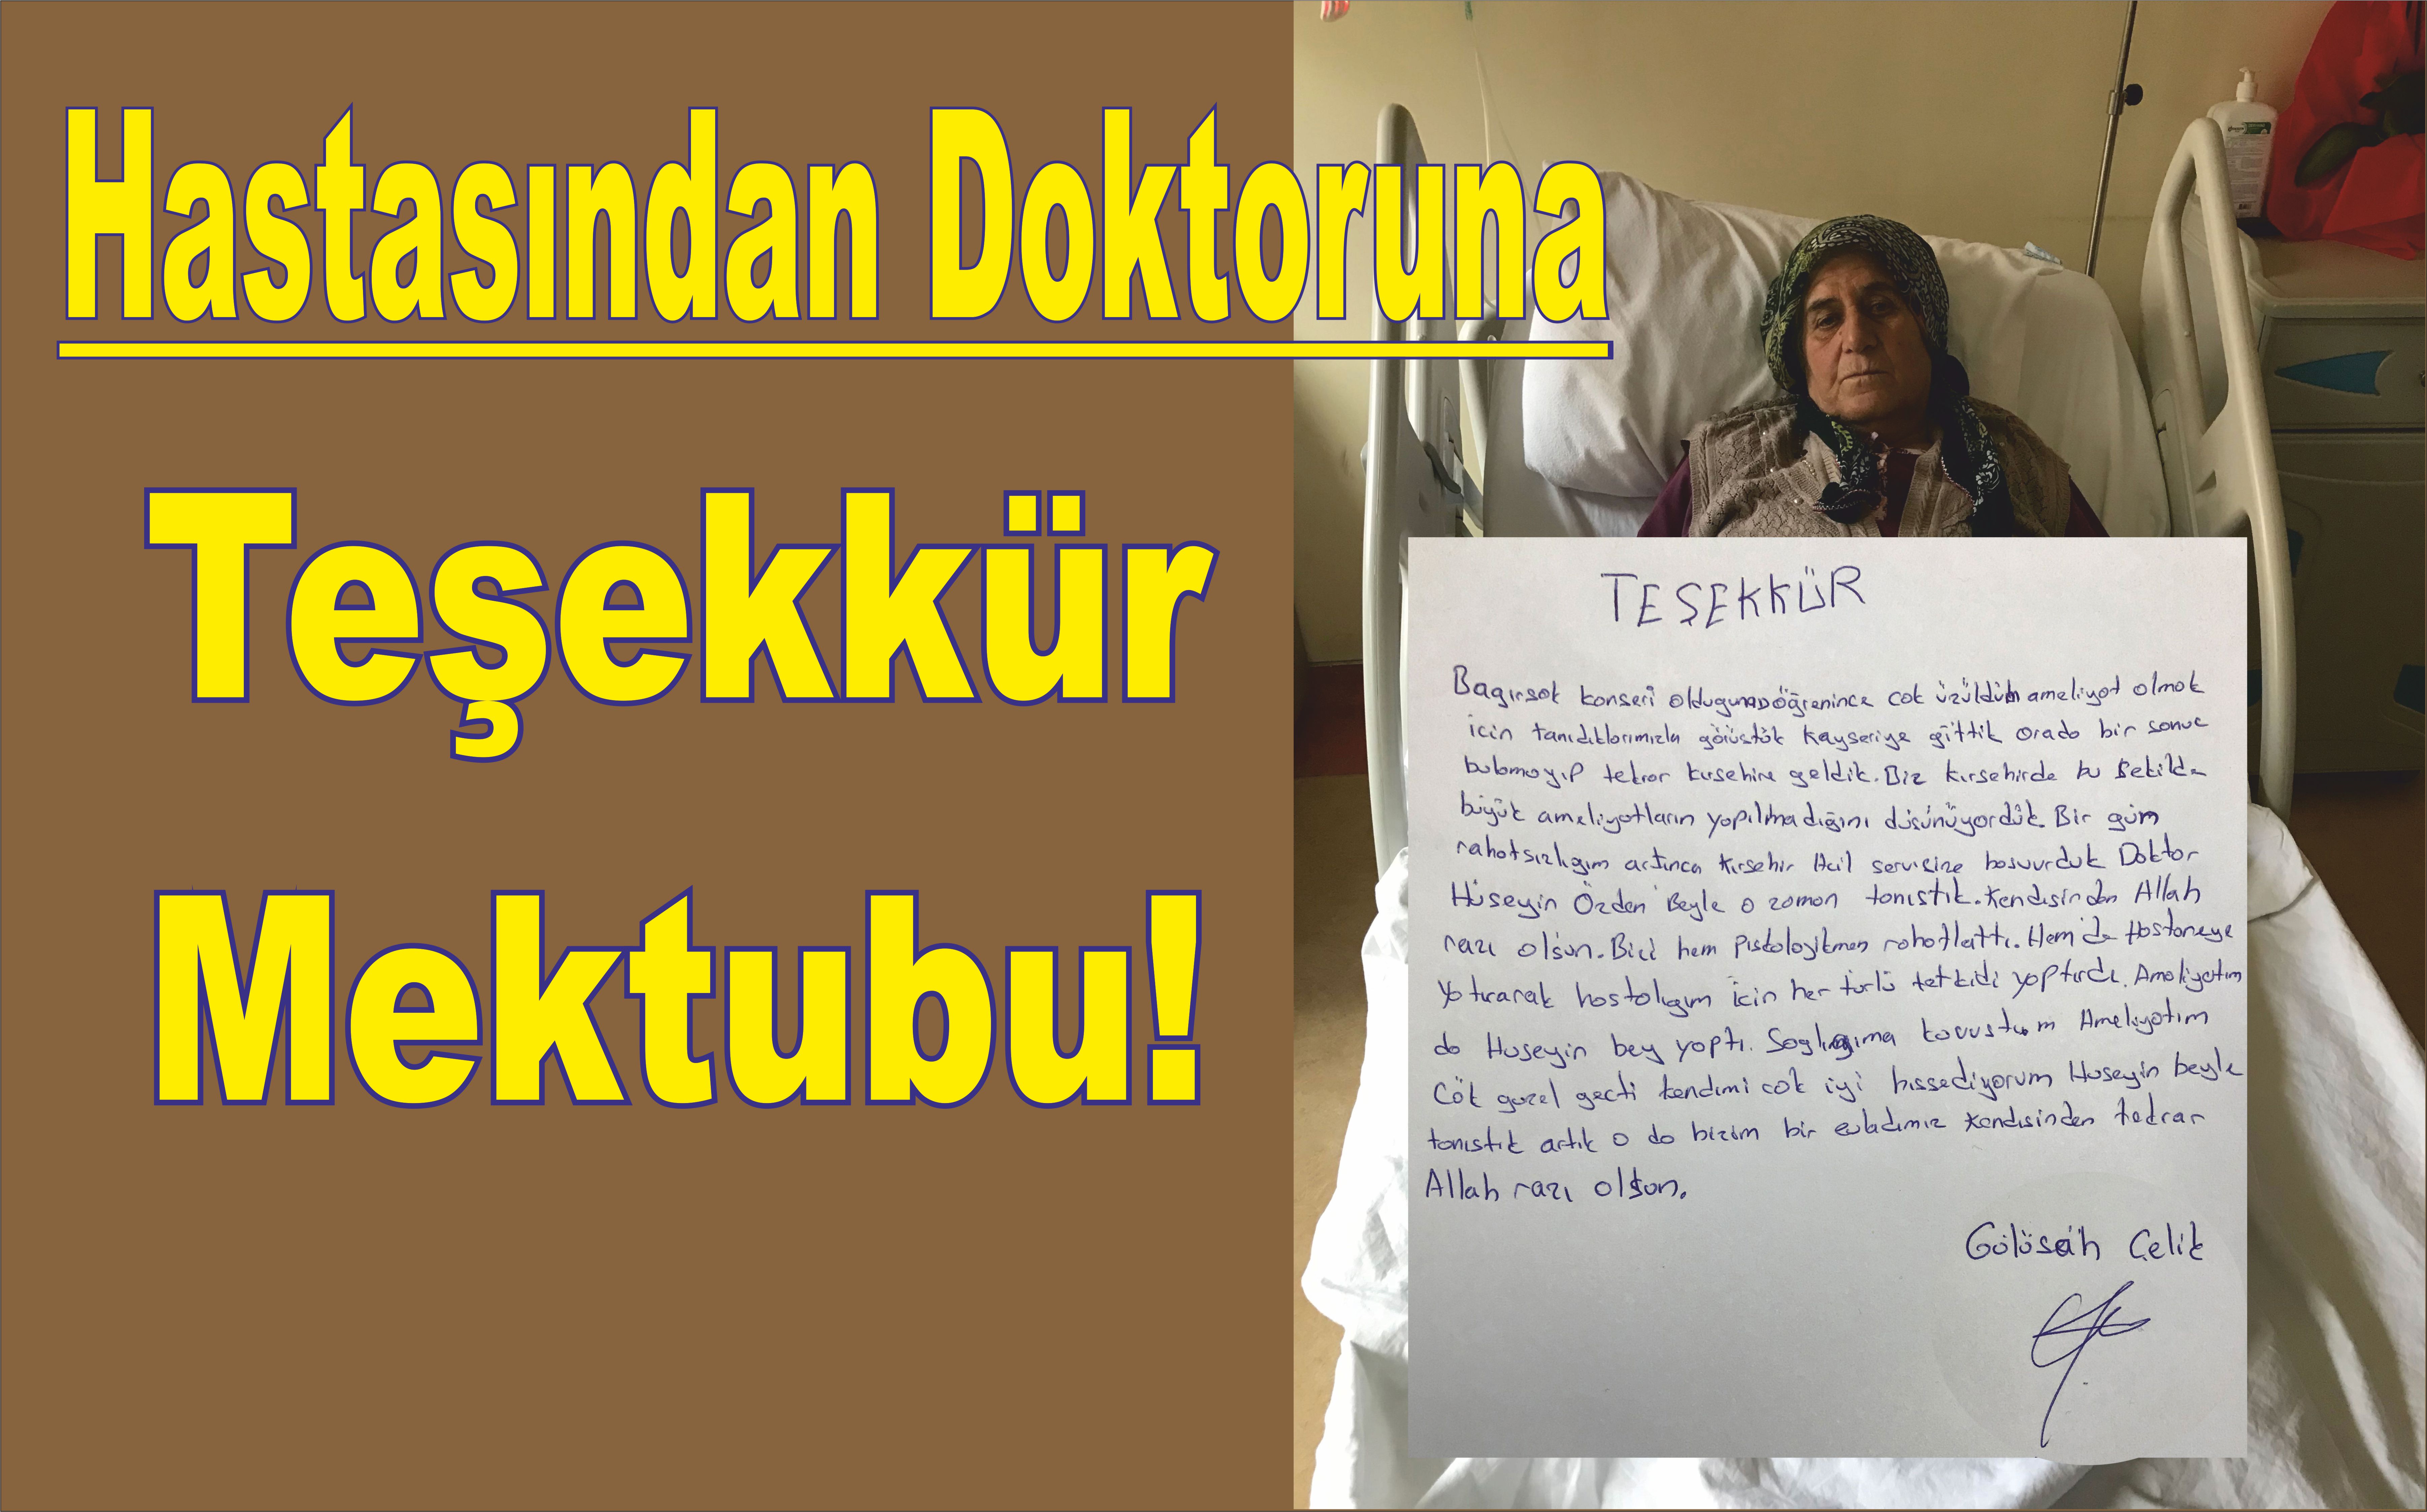 Hastasından Doktoruna
Teşekkür
Mektubu!
TEŞEKKÜR
Bagırsak konseri oldugumu öğrenince cok üzüldüm ameliyat olmak
icin tanıdıklarımızla görüstük Kayseriye gittik orada bir sonuc
bulamayıp tekrar kırsehire geldik. Biz kırsehirde bu sekilde
büyük ameliyatların yapılmadığını düsünüyorduk. Bir gün
rahatsızlıgım artınca Kırsehir Acil servisine basvurduk Doktor
Hüseyin Özden Beyle o zaman tanıstık. Kendisinden Allah
razı olsun. Bizi hem Piskolojikmen rahatlattı. Hem de Hastaneye
Yatırarak hastalıgım icin her türlü tetkidi yaptırdı. Ameliyatım
da Huseyin bey yaptı. Saglıgıma kavustum Ameliyatım
Cök guzel gecti kendimi cok iyi hissediyorum Huseyin beyle
tanıstık artık o da bizim bir evladımız Kendisinden tekrar
Allah razı olsun.
Gülüsah Çelik